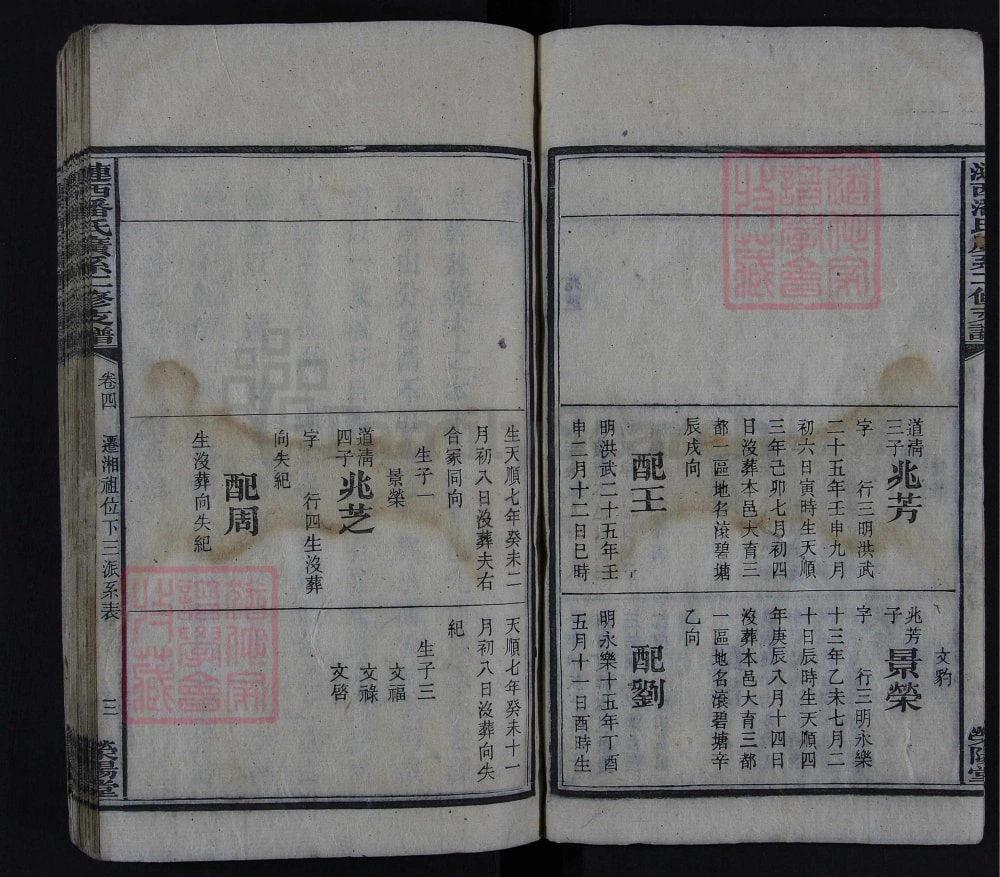 道淸
三子
兆芳
字 行三明洪武
二十五年壬申九月
初六日寅時生天順
三年己卯七月初四
日沒葬本邑大育三
都一區地名滾碧塘
辰戌向
配王
明洪武二十五年壬
申二月十二日巳時
文豹
兆芳
子
景榮
字 行三明永樂
十三年乙未七月二
十日辰時生天順四
年庚辰八月十四日
沒葬本邑大育三都
一區地名滾碧塘辛
乙向
配劉
明永樂十五年丁酉
五月十一日酉時生
生天順七年癸未二
月初八日沒葬夫右
合冢同向
生子一
景榮
道淸
四子
兆芝
字 行四生沒葬
向失紀
配周
生沒葬向失紀
天順七年癸未十一
月初八日沒葬向失
紀
生子三
文福
文祿
文啓
漣西潘氏廣系二修支譜
卷四
遷湘祖位下三派系表
三
滎陽堂